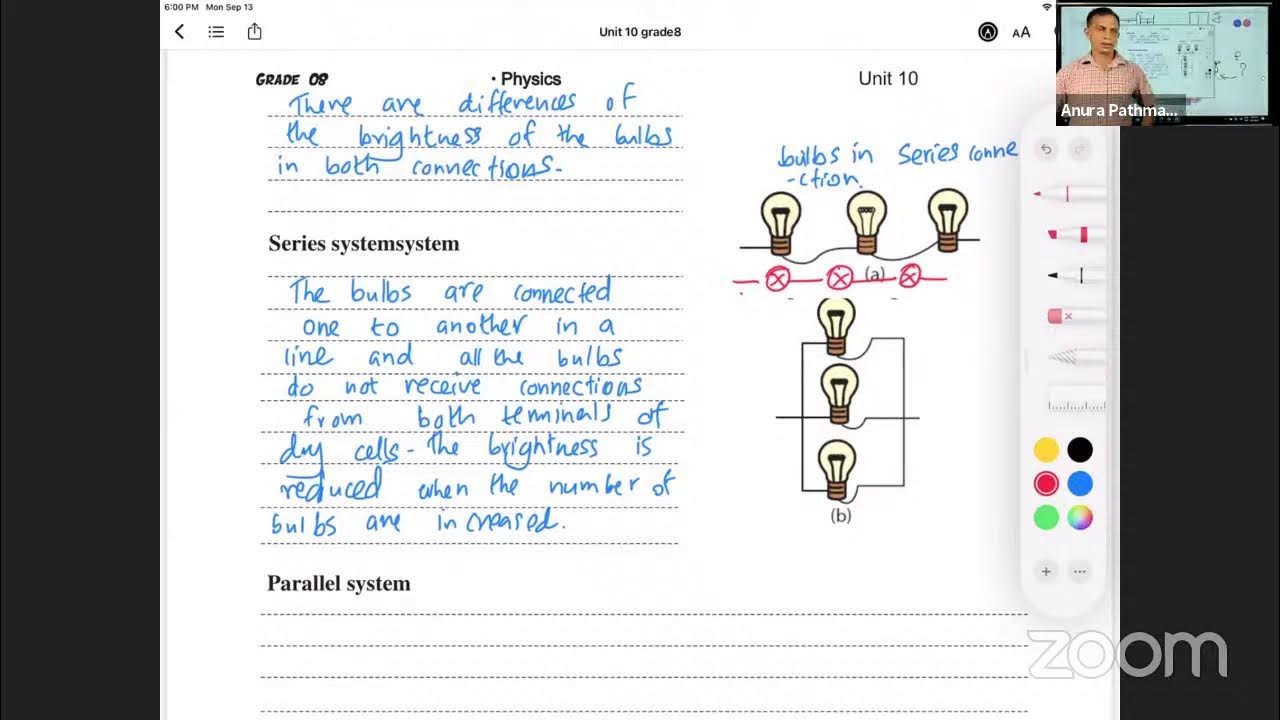 6:00 PM Mon Sep 13
Unit 10 grade8
AA
GRADE 08
• Physics
Unit 10
Anura Pathma...
There are differences of
the brightness of the bulbs
in both connections.
bulbs in Series conne
-ction.
Series systemsystem
(a)
The bulbs are connected
one to another in a
line and all the bulbs
do not receive connections
from both terminals of
dry cells. The brightness is
reduced when the number of
bulbs are increased.
(b)
Parallel system
zoom